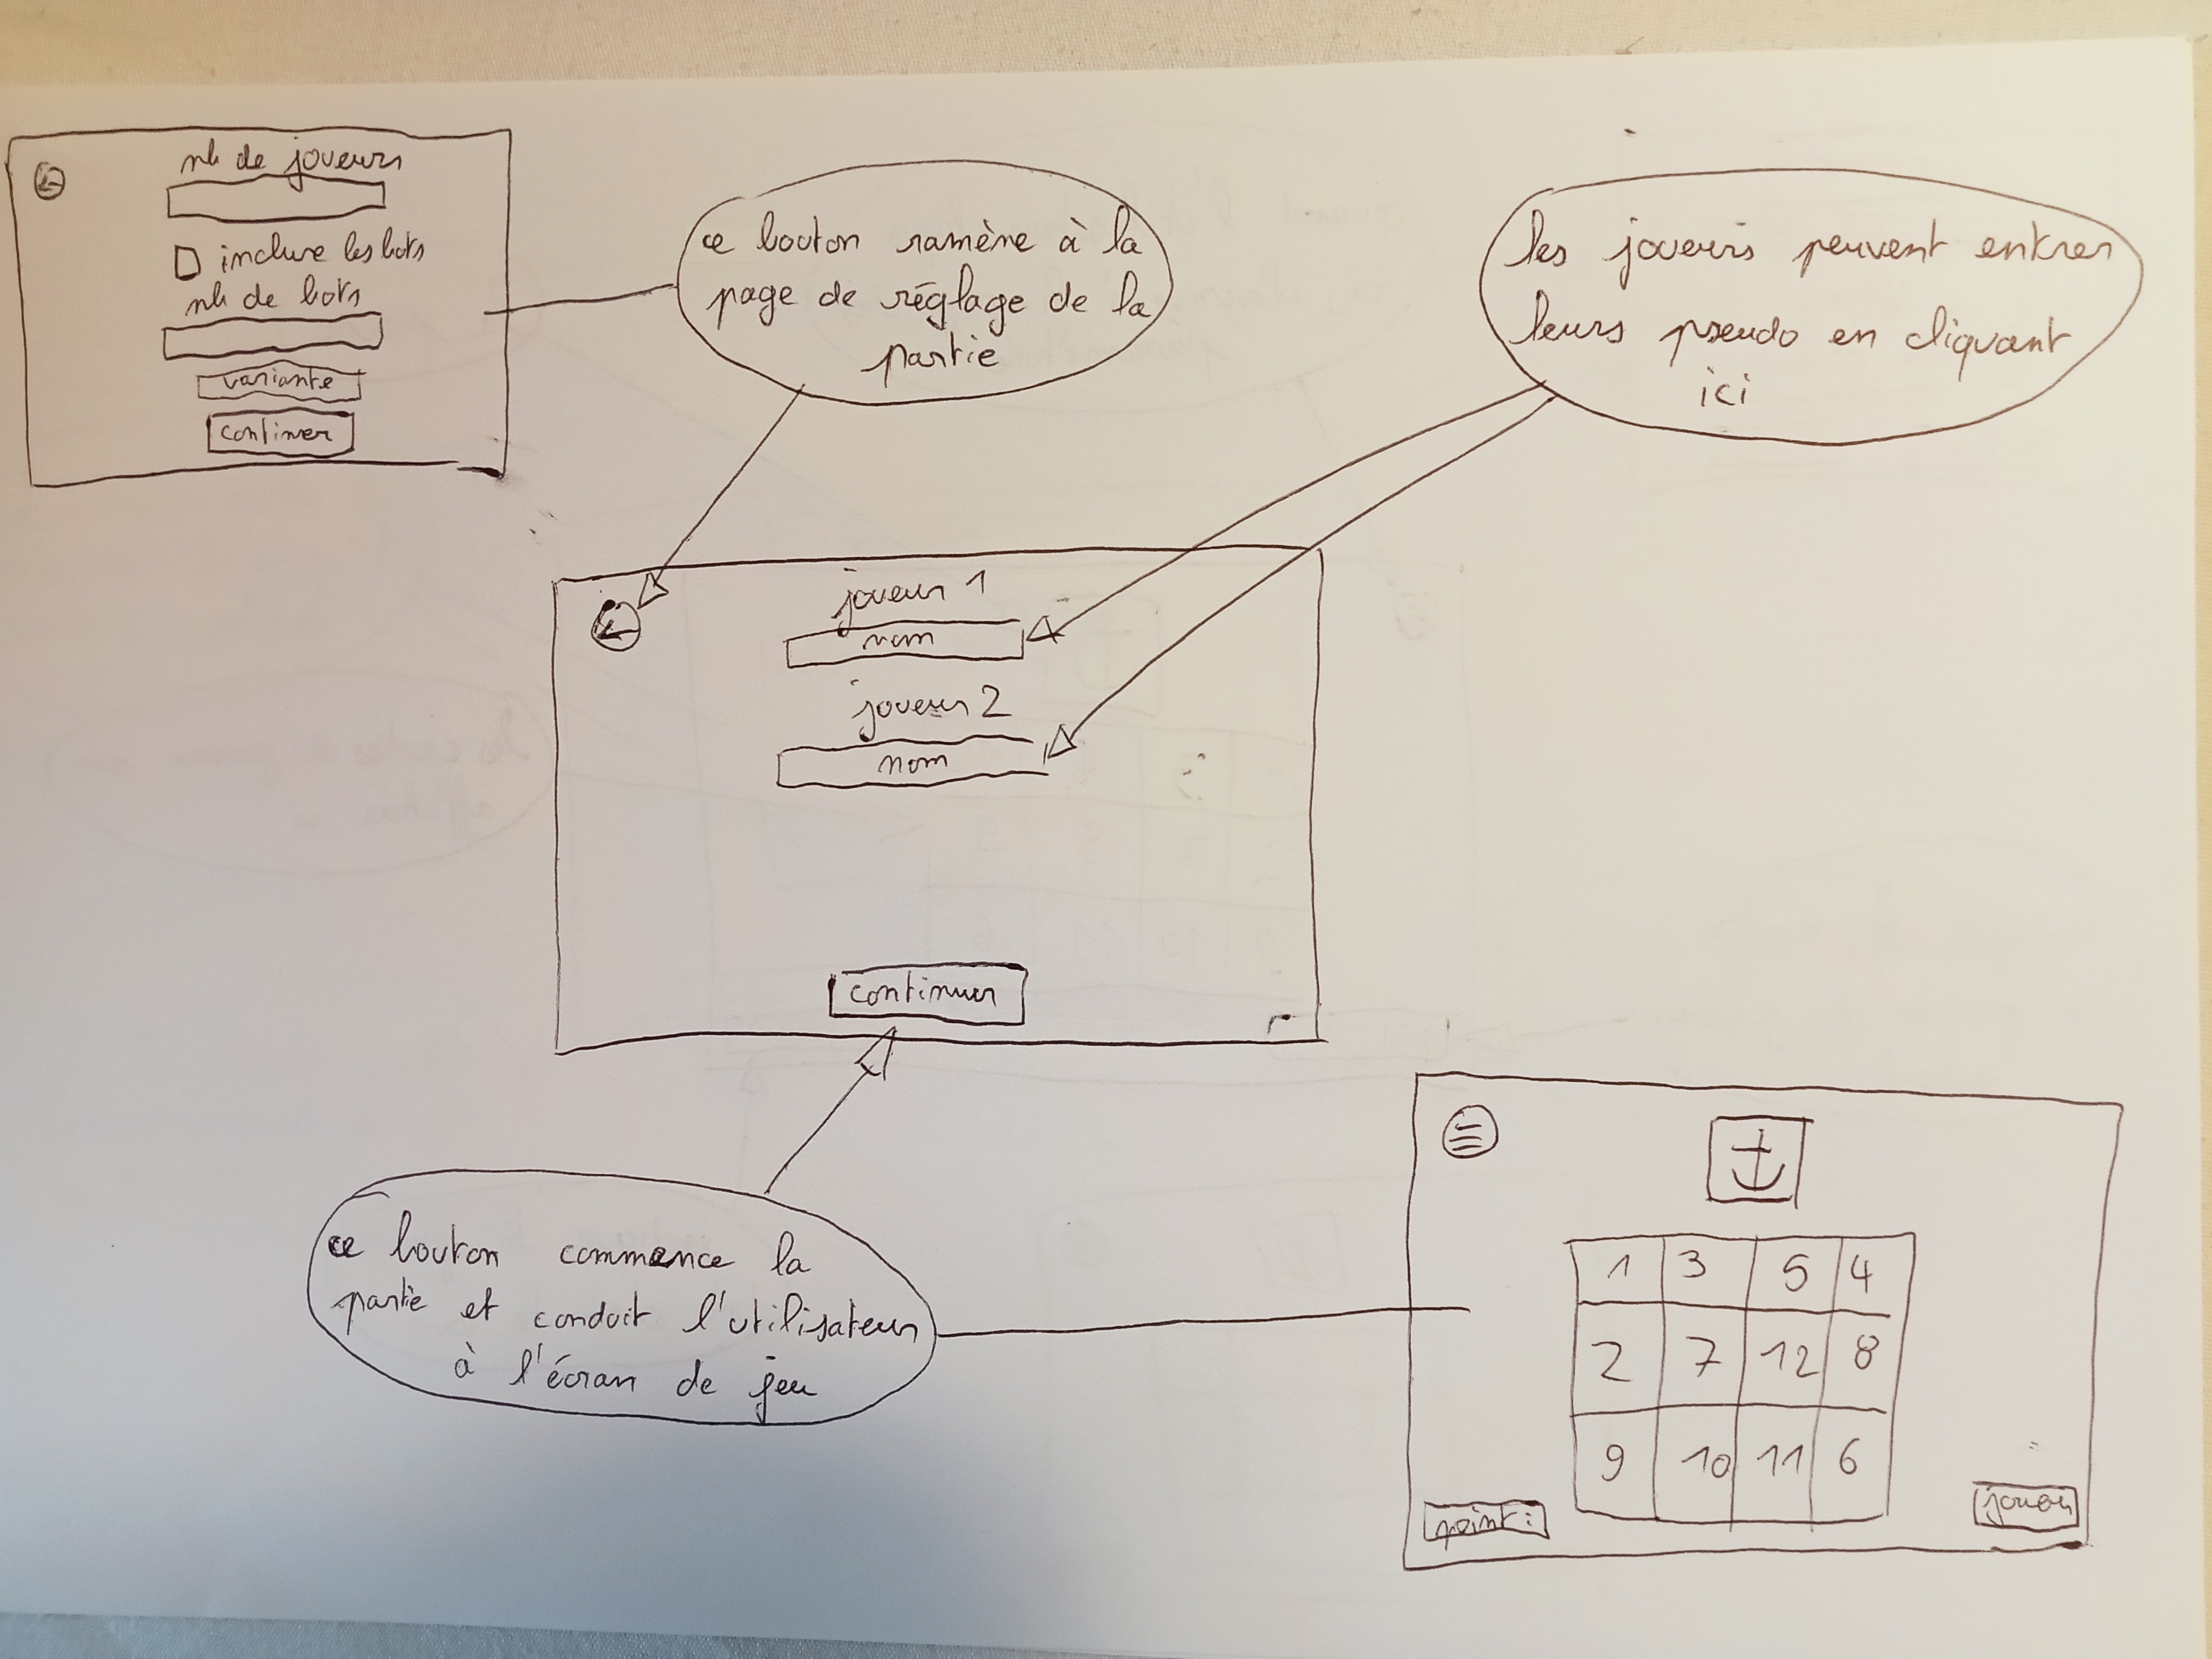 nb de joueurs
inclure les bots
nb de bots
variante
continuer
ce bouton ramène à la
page de réglage de la
partie
les joueurs peuvent entrer
leurs pseudo en cliquant
ici
joueur 1
nom
joueur 2
nom
continuer
ce bouton commence la
partie et conduit l'utilisateur
à l'écran de jeu
1 3 5 4
2 7 12 8
9 10 11 6
point :
jouer